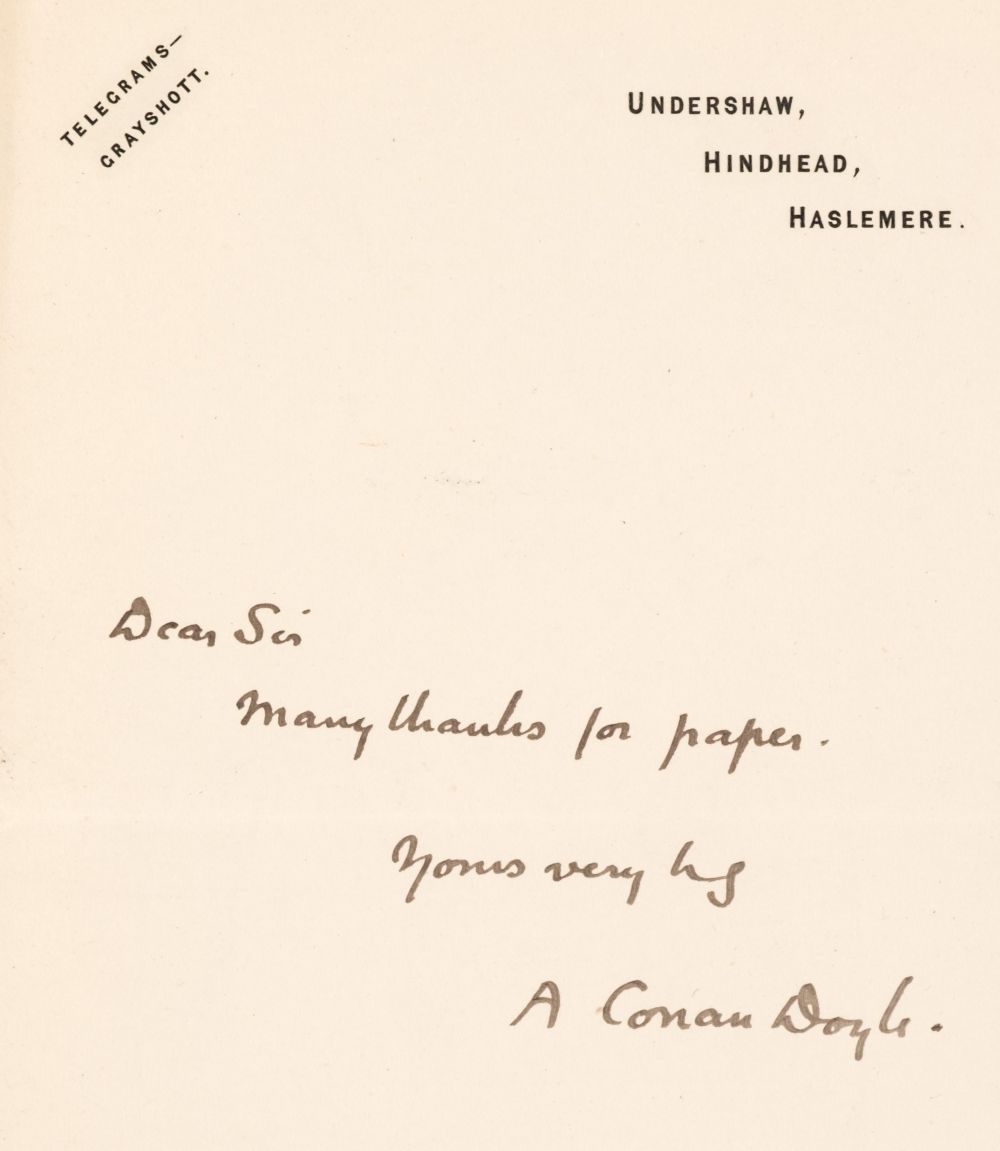 TELEGRAMS—
GRAYSHOTT.
UNDERSHAW,
HINDHEAD,
HASLEMERE.
Dear Sir
Many thanks for paper.
Yours very
A Conan Doyle.